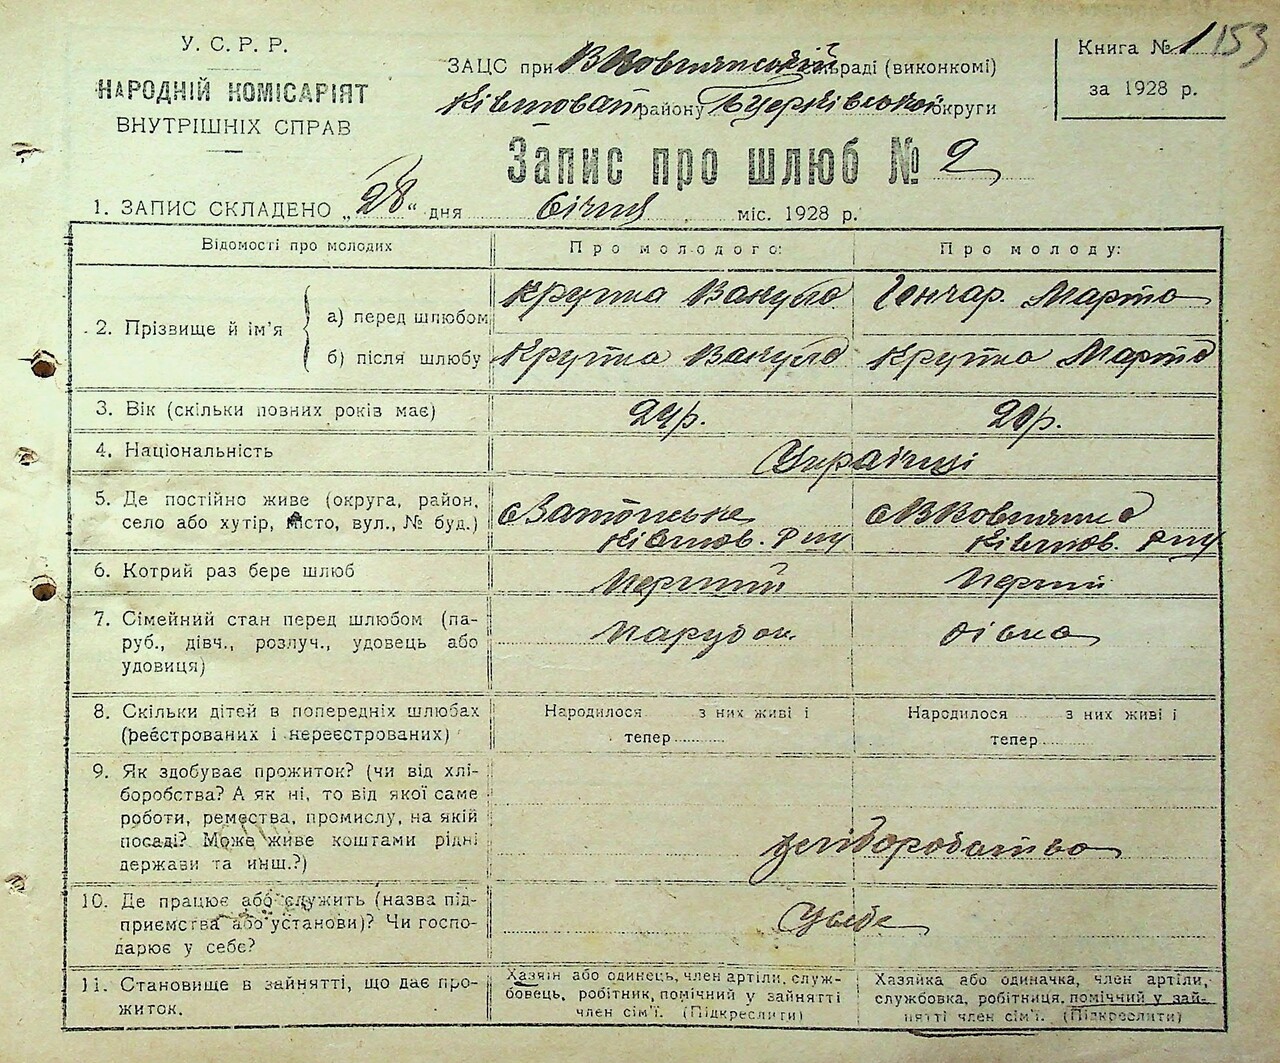 У. С. Р. Р.
НАРОДНІЙ КОМІСАРІЯТ
ВНУТРІШНІХ СПРАВ
ЗАЦС при В Вовнянській раді (виконкомі)
району Бцерківської округи
Книга № 1 153
за 1928 р.
Запис про шлюб № 2
1. ЗАПИС СКЛАДЕНО „28“ дня січня міс. 1928 р.
Відомості про молодих
Про молодого:
Про молоду:
2. Прізвище й ім'я
а) перед шлюбом
Крутка Вакула
Гончар Марта
б) після шлюбу
Крутка Вакула
Крутка Марта
3. Вік (скільки повних років має)
24р.
20р.
4. Національність
Українці
5. Де постійно живе (округа, район,
село або хутір, місто, вул., № буд.)
6. Котрий раз бере шлюб
Перший
Перший
7. Сімейний стан перед шлюбом (па-
руб., дівч., розлуч., удовець або
удовиця)
Парубок
дівка
8. Скільки дітей в попередніх шлюбах
(реєстрованих і нереєстрованих)
Народилося з них живі і
тепер
Народилося з них живі і
тепер
9. Як здобуває прожиток? (чи від хлі-
боробства? А як ні, то від якої саме
роботи, ремества, промислу, на якій
посаді? Може живе коштами рідні
держави та инш.?)
хліборобство
10. Де працює або служить (назва під-
приємства або установи)? Чи госпо-
дарює у себе?
У себе
11. Становище в зайнятті, що дає про-
житок.
Хазяїн або одинець, член артіли, служ-
бовець, робітник, помічний у зайнятті
член сім'ї. (Підкреслити)
Хазяйка або одиначка, член артіли,
службовка, робітниця, помічний у зай-
нятті член сім'ї. (Підкреслити)